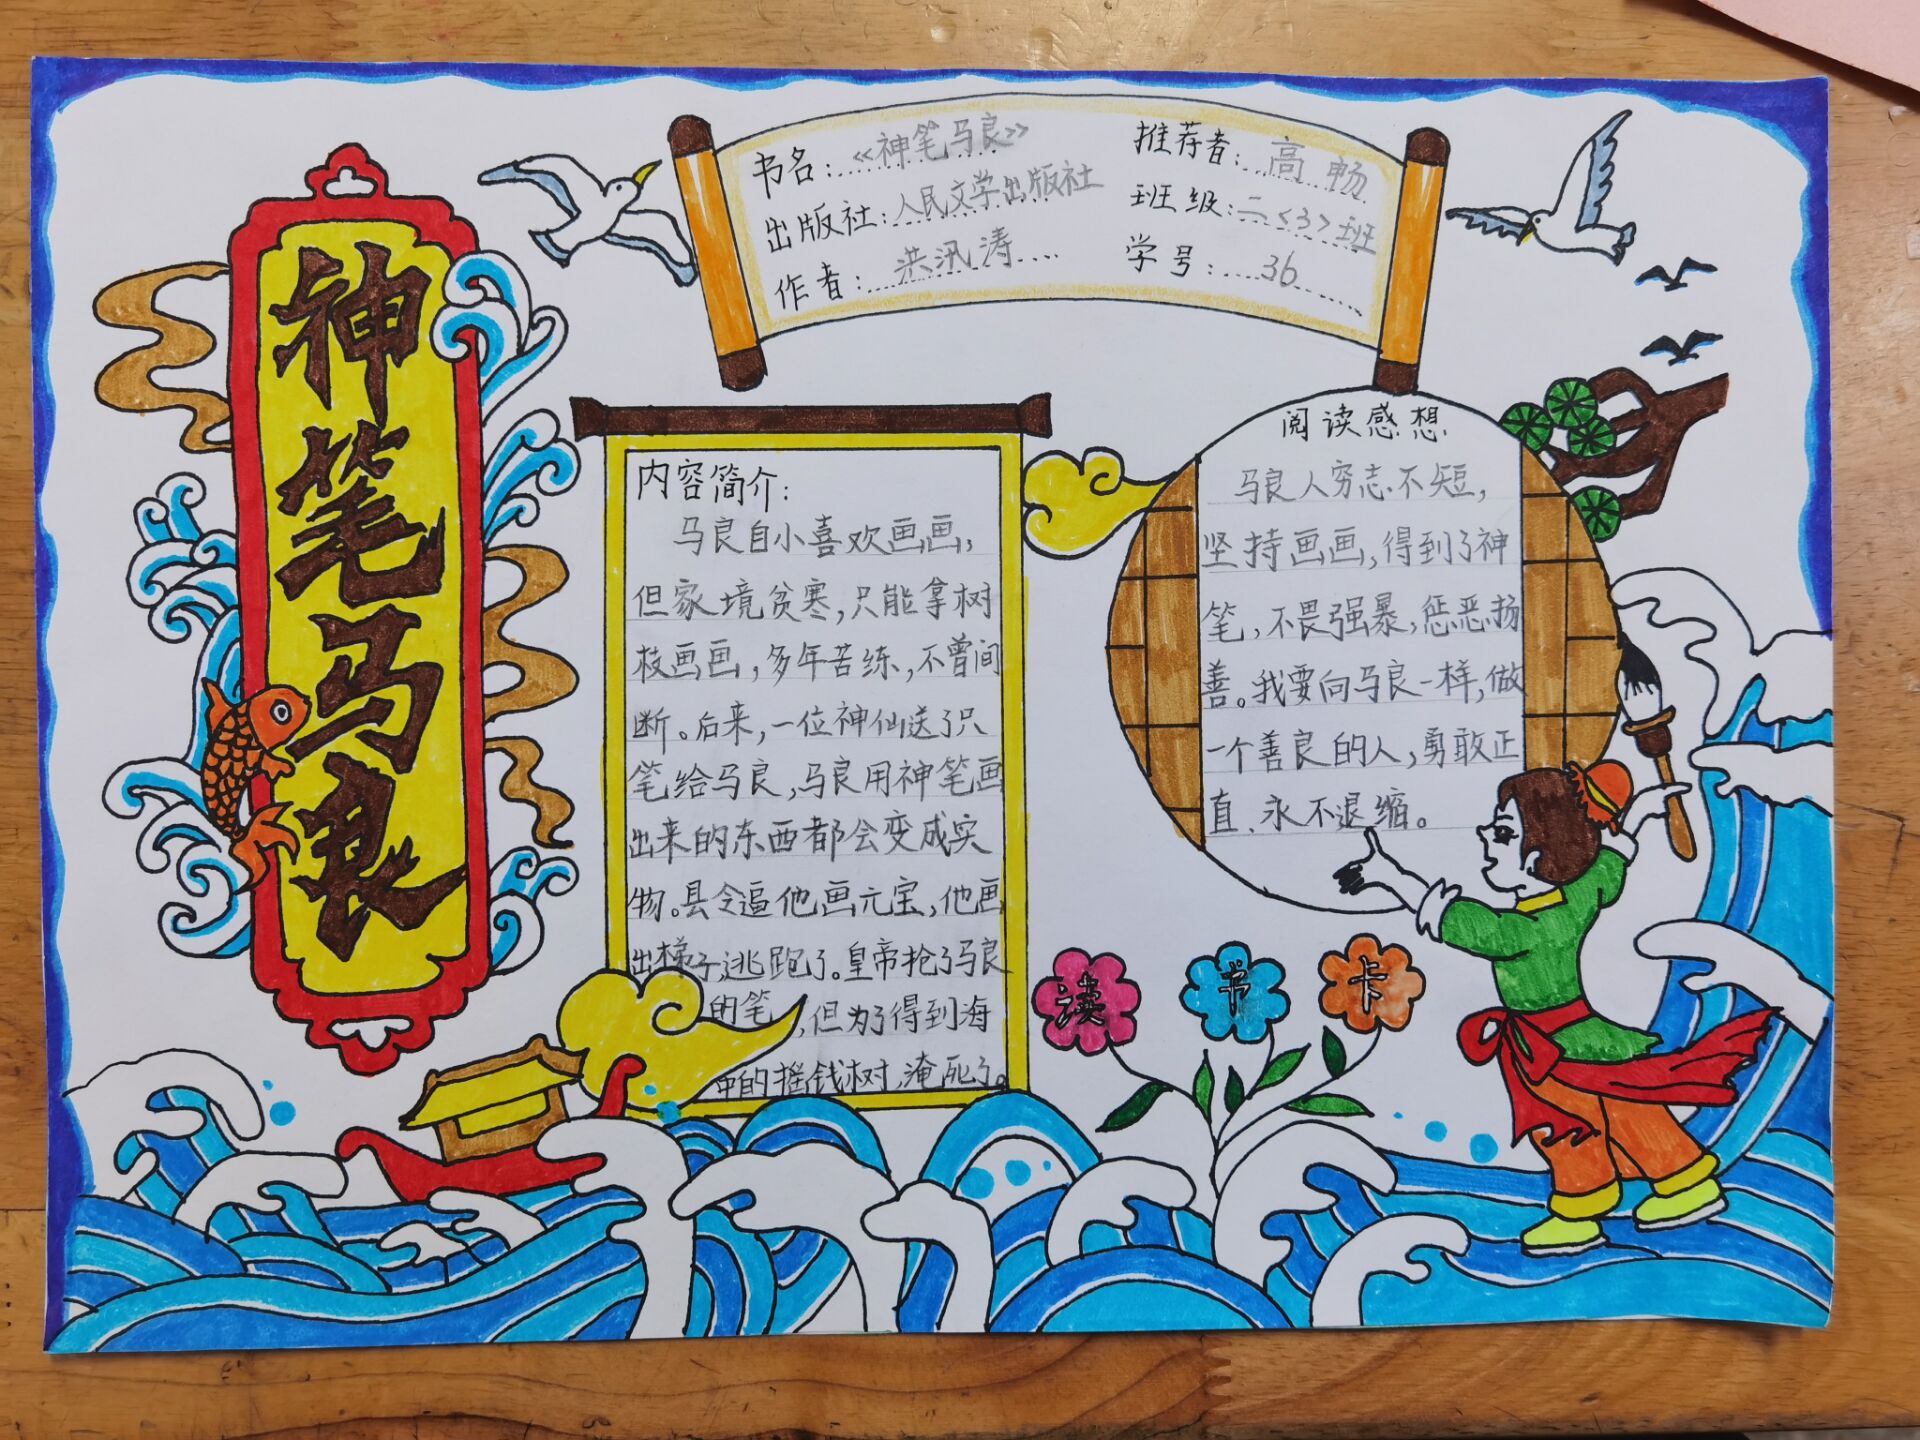 神笔马良
书名:《神笔马良》
出版社:人民文学出版社
作者:洪汛涛
推荐者:高畅
班级:二<3>班
学号:36
内容简介:
马良自小喜欢画画,
但家境贫寒,只能拿树
枝画画,多年苦练,不曾间
断。后来,一位神仙送了只
笔给马良,马良用神笔画
出来的东西都会变成实
物。县令逼他画元宝,他画
出梯子逃跑了。皇帝抢了马良
的笔,但为了得到海
中的摇钱树,淹死了。
阅读感想
马良人穷志不短,
坚持画画,得到了神
笔,不畏强暴,惩恶扬
善。我要向马良一样,做
一个善良的人,勇敢正
直、永不退缩。
读书卡